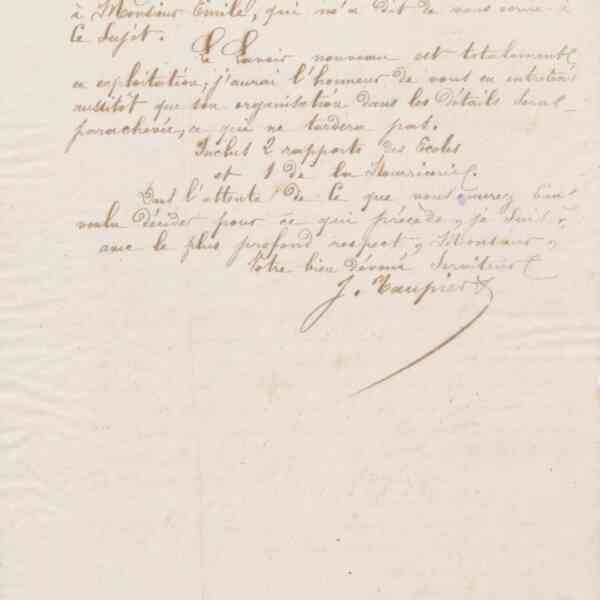 à Monsieur Emile, qui m'a dit de vous écrire à
ce sujet.
Le Lavoir nouveau est totalement
en exploitation; j'aurai l'honneur de vous en entretenir
aussitôt que son organisation dans les détails sera
parachevée, ce qui ne tardera pas.
Inclus 2 rapports des Ecoles
et 1 de la Nourricerie.
Dans l'attente de ce que vous aurez bien
voulu décider pour ce qui précède, je suis,
avec le plus profond respect, Monsieur,
Votre bien dévoué Serviteur
J.